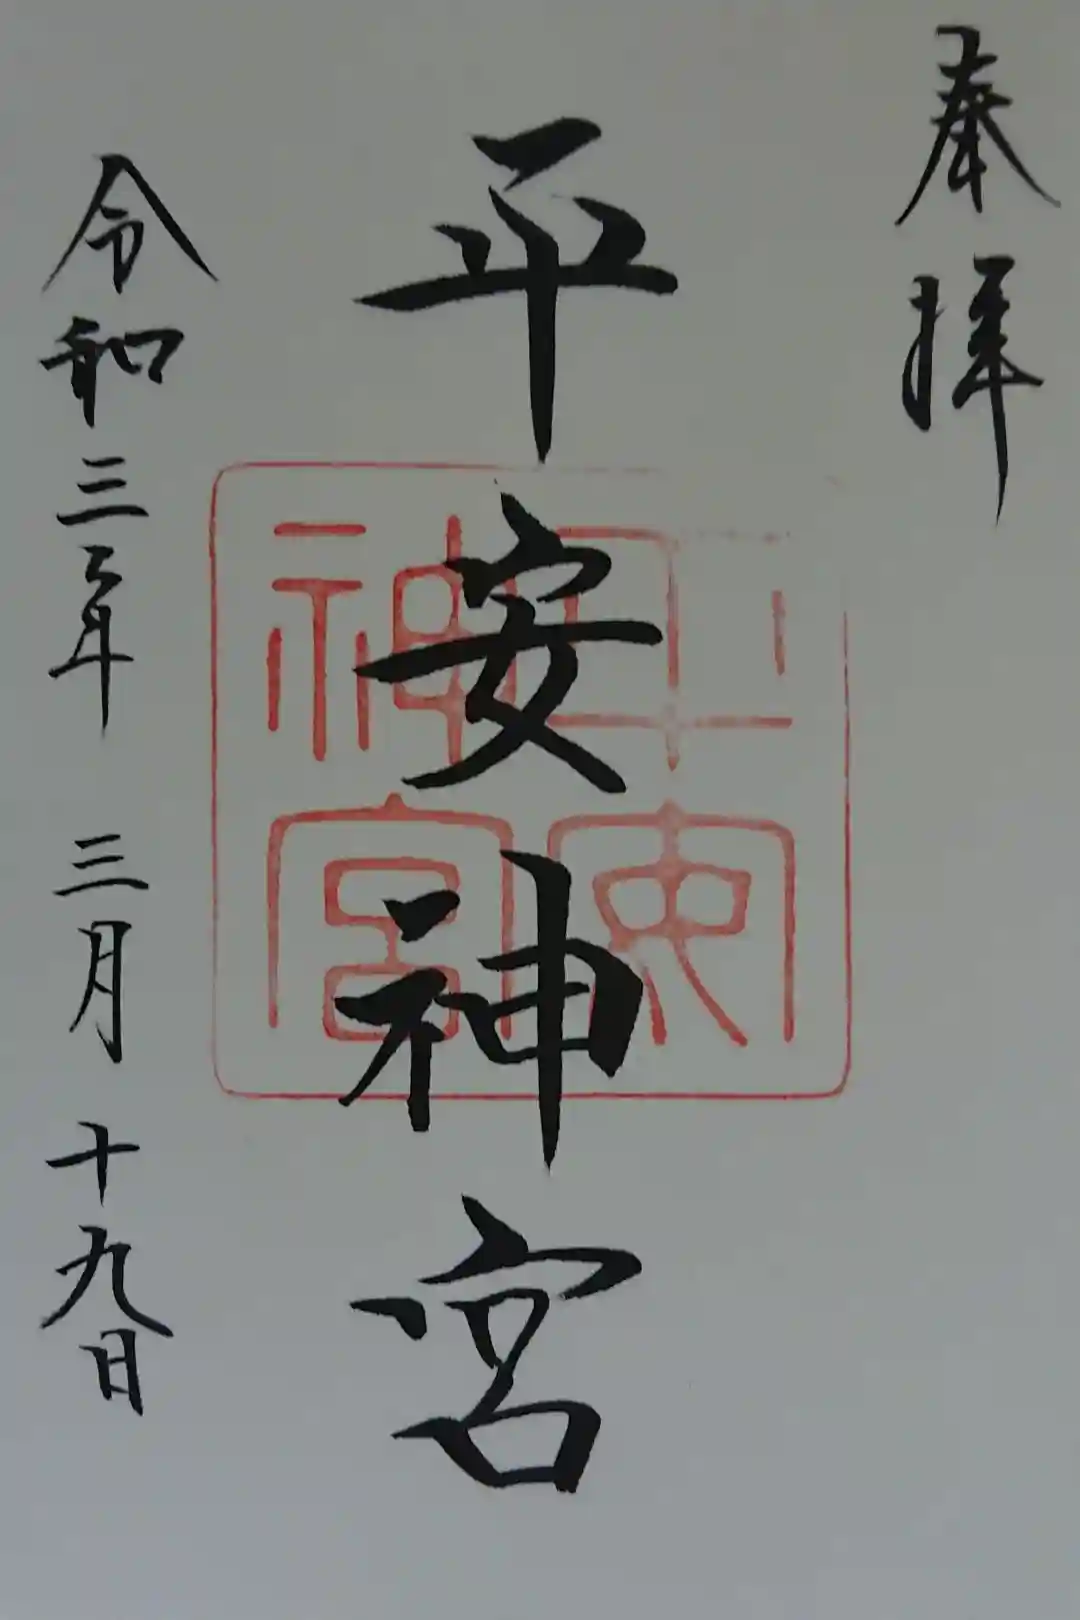 奉拝
平安神宮
平安神宮
令和三年 三月 十九日